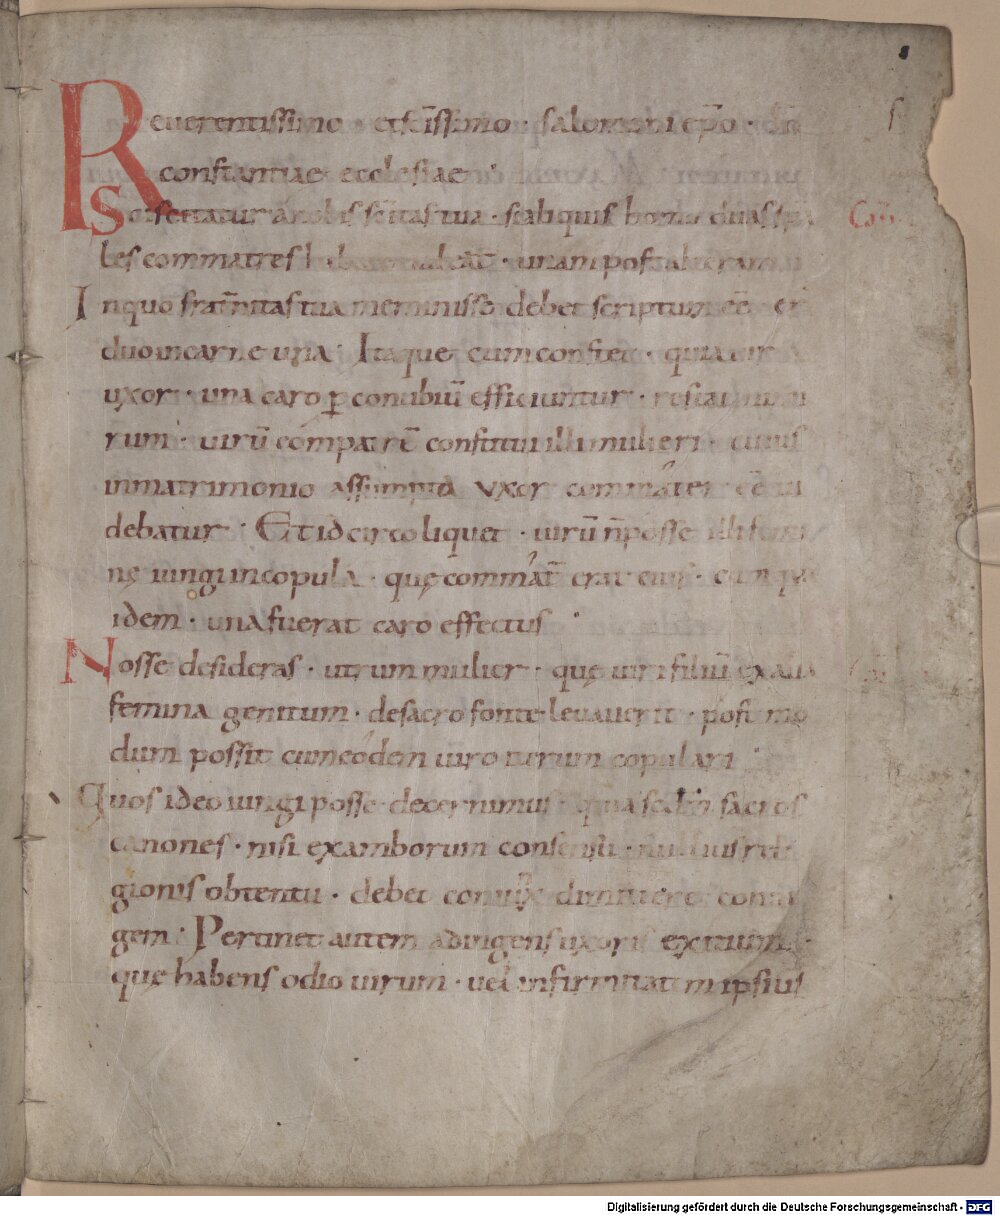 Reuerentissimo et sc̄issimo · salomoni ep̄o ·
constantiae ecclesiae ·
Sciscitatur a nobis sc̄itas tua · si aliquis homo duas sp̄ita
les commatres unam post alteram
In quo frat̄nitas tua meminisse debet scriptum eē · er
duo in carne una · Itaque cum constet · quia uir
uxor · una caro ꝑ conubiū efficiuntur · restat
rum · uirū compatrē constitui illi mulieri · cuius
in matrimonio assumpta uxor commater eē ui
debatur · Et idcirco liquet · uirū n̄ posse illi femi
nę iungi in copula · quę commat̄ erat eius · cum qua
idem · una fuerat caro effectus ·
Nosse desideras · utrum mulier · quę uiri filiū ex alia
femina genitum · de sacro fonte leuauerit · post mo
dum possit cum eodem uiro iterum copulari ·
Quos ideo iungi posse decernimus · quia scd̄m sacros
canones · nisi ex amborum consensu · nullius reli
gionis obtentu · debet coniūx dimittere coniu
gem · Pertinet autem ad ingens uxoris exitium ·
quę habens odio uirum · uel infirmitatem ipsius
Digitalisierung gefördert durch die Deutsche Forschungsgemeinschaft - DFG